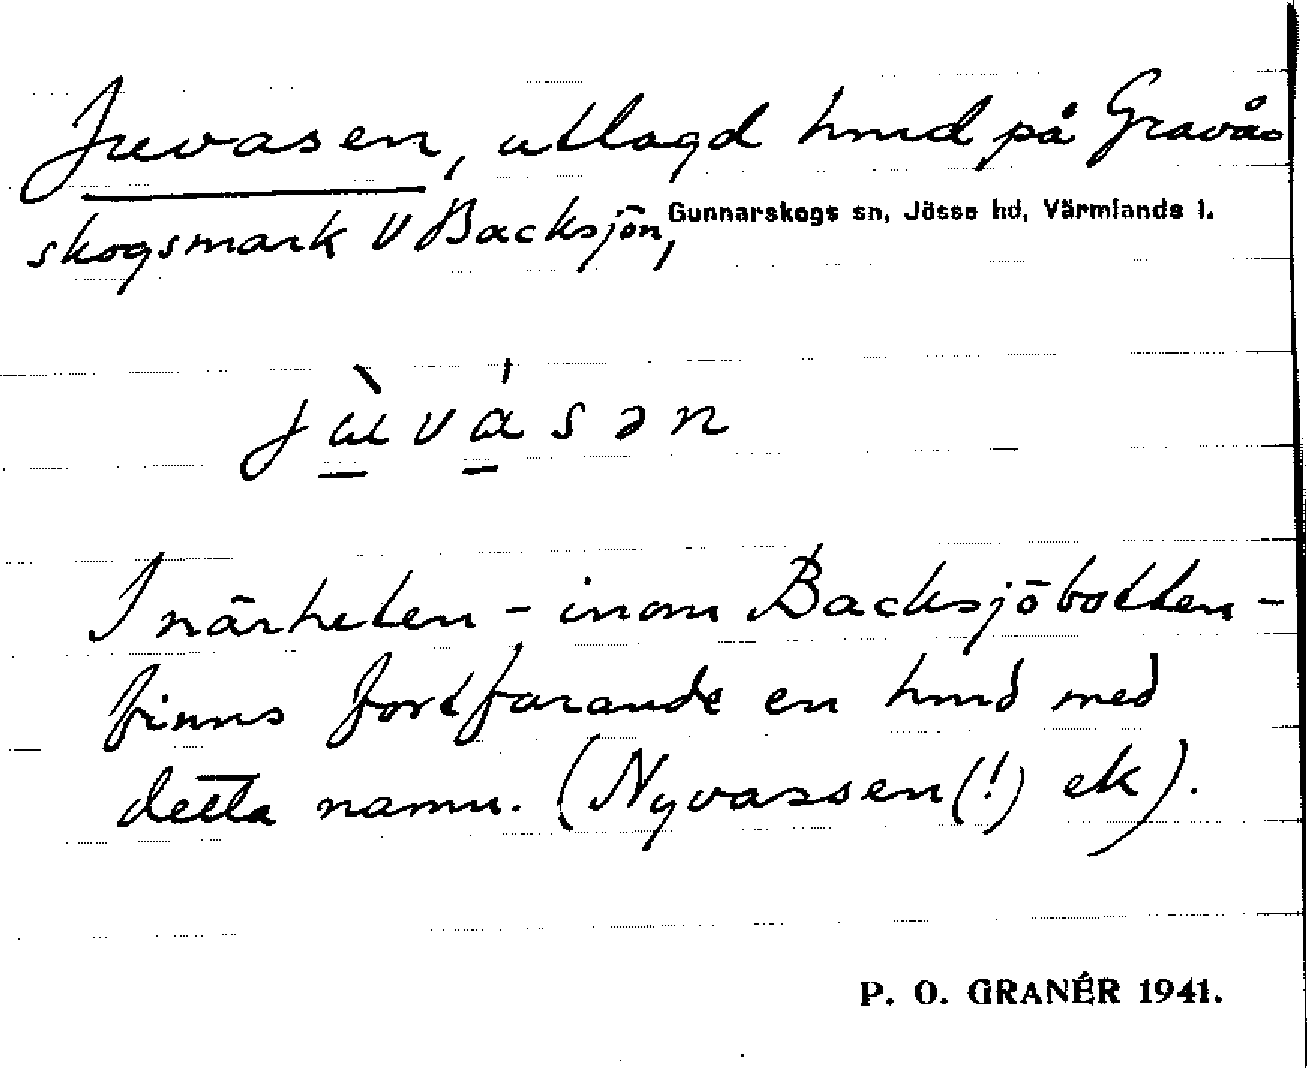 Juvasen, utlagd hmd på Gravås
skogsmark V Backsjön, Gunnarskogs sn, Jösse hd, Värmlands l.
jùvásən
I närheten - inom Backsjöbotten -
finns fortfarande en hmd med
detta namn. (Nyvassen(!) ek).
P. O. GRANÉR 1941.